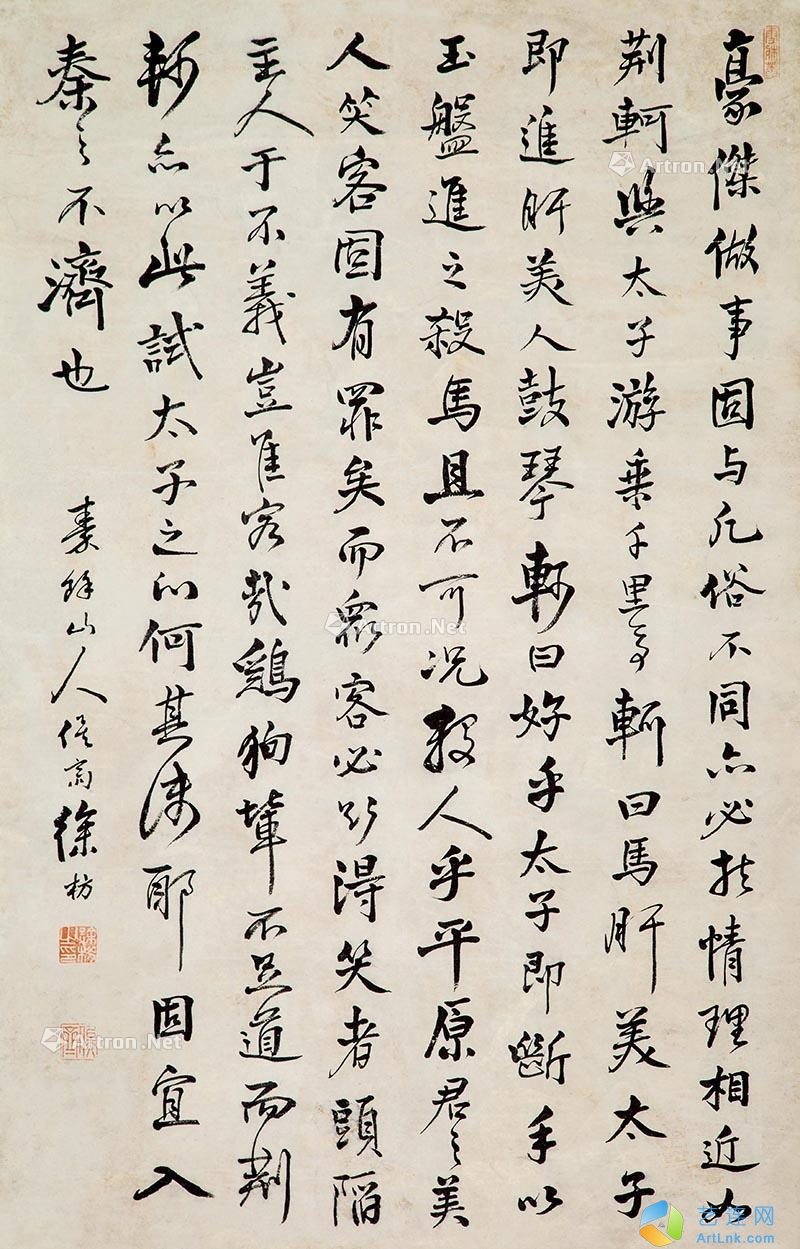 豪傑做事固与凡俗不同亦必於情理相近如
荆軻與太子游乗千里馬軻曰馬肝美太子
即進肝美人鼓琴軻曰好乎太子即斷手以
玉盤進之殺馬且不可况殺人乎平原君之美
人笑客固有罪矣而衆客必欲得笑者頭陷
主人于不義豈佳客哉鷄狗輩不足道而荆
軻亦以此試太子之心何其淺耶固宜入
秦之不濟也
秦餘山人俟齋徐枋
Artron.Net
Artron.Net
Artron.Net
Artron.Net
艺连网
ArtLnk.com